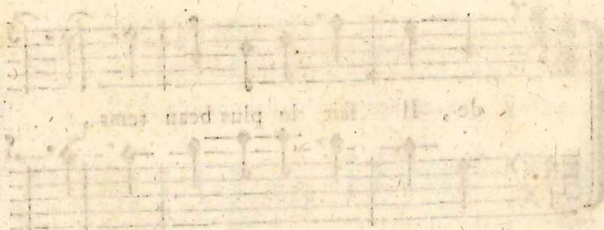 de, Il fait le plus beau tems,